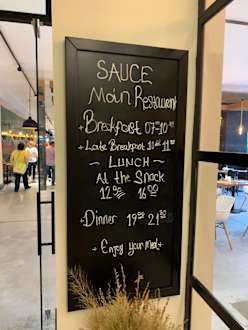 SAUCE
Main Restaurant
+Breakfast 07⁰⁰ 10⁰⁰
+Late Breakfast 10⁰⁰ 11⁰⁰
~ LUNCH ~
At the Snack
12⁰⁰ 16⁰⁰
+Dinner 19⁰⁰ 21³⁰
+ Enjoy your meal+